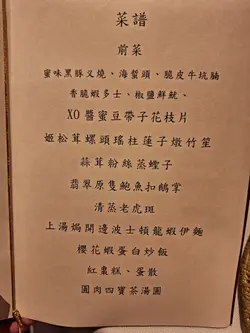 菜譜
前菜
蜜味黑豚叉燒、海蜇頭、脆皮牛坑腩
香脆蝦多士、椒鹽鮮魷、
XO醬蜜豆帶子花枝片
姬松茸螺頭瑤柱蓮子燉竹笙
蒜茸粉絲蒸蟶子
翡翠原隻鮑魚扣鵝掌
清蒸老虎斑
上湯焗開邊波士頓龍蝦伊麵
櫻花蝦蛋白炒飯
紅棗糕、蛋散
圓肉四寶茶湯圓